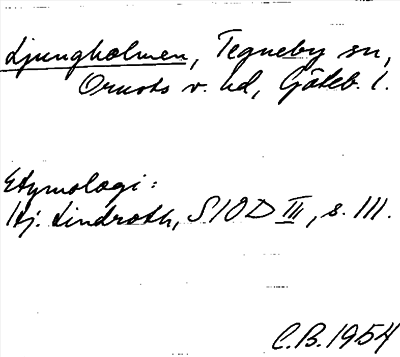 Ljungholmen, Tegneby sn,
Orusts v. hd, Göteb. l.
Etymologi:
Hj. Lindroth, SIOD III, s. 111.
C.B. 1954